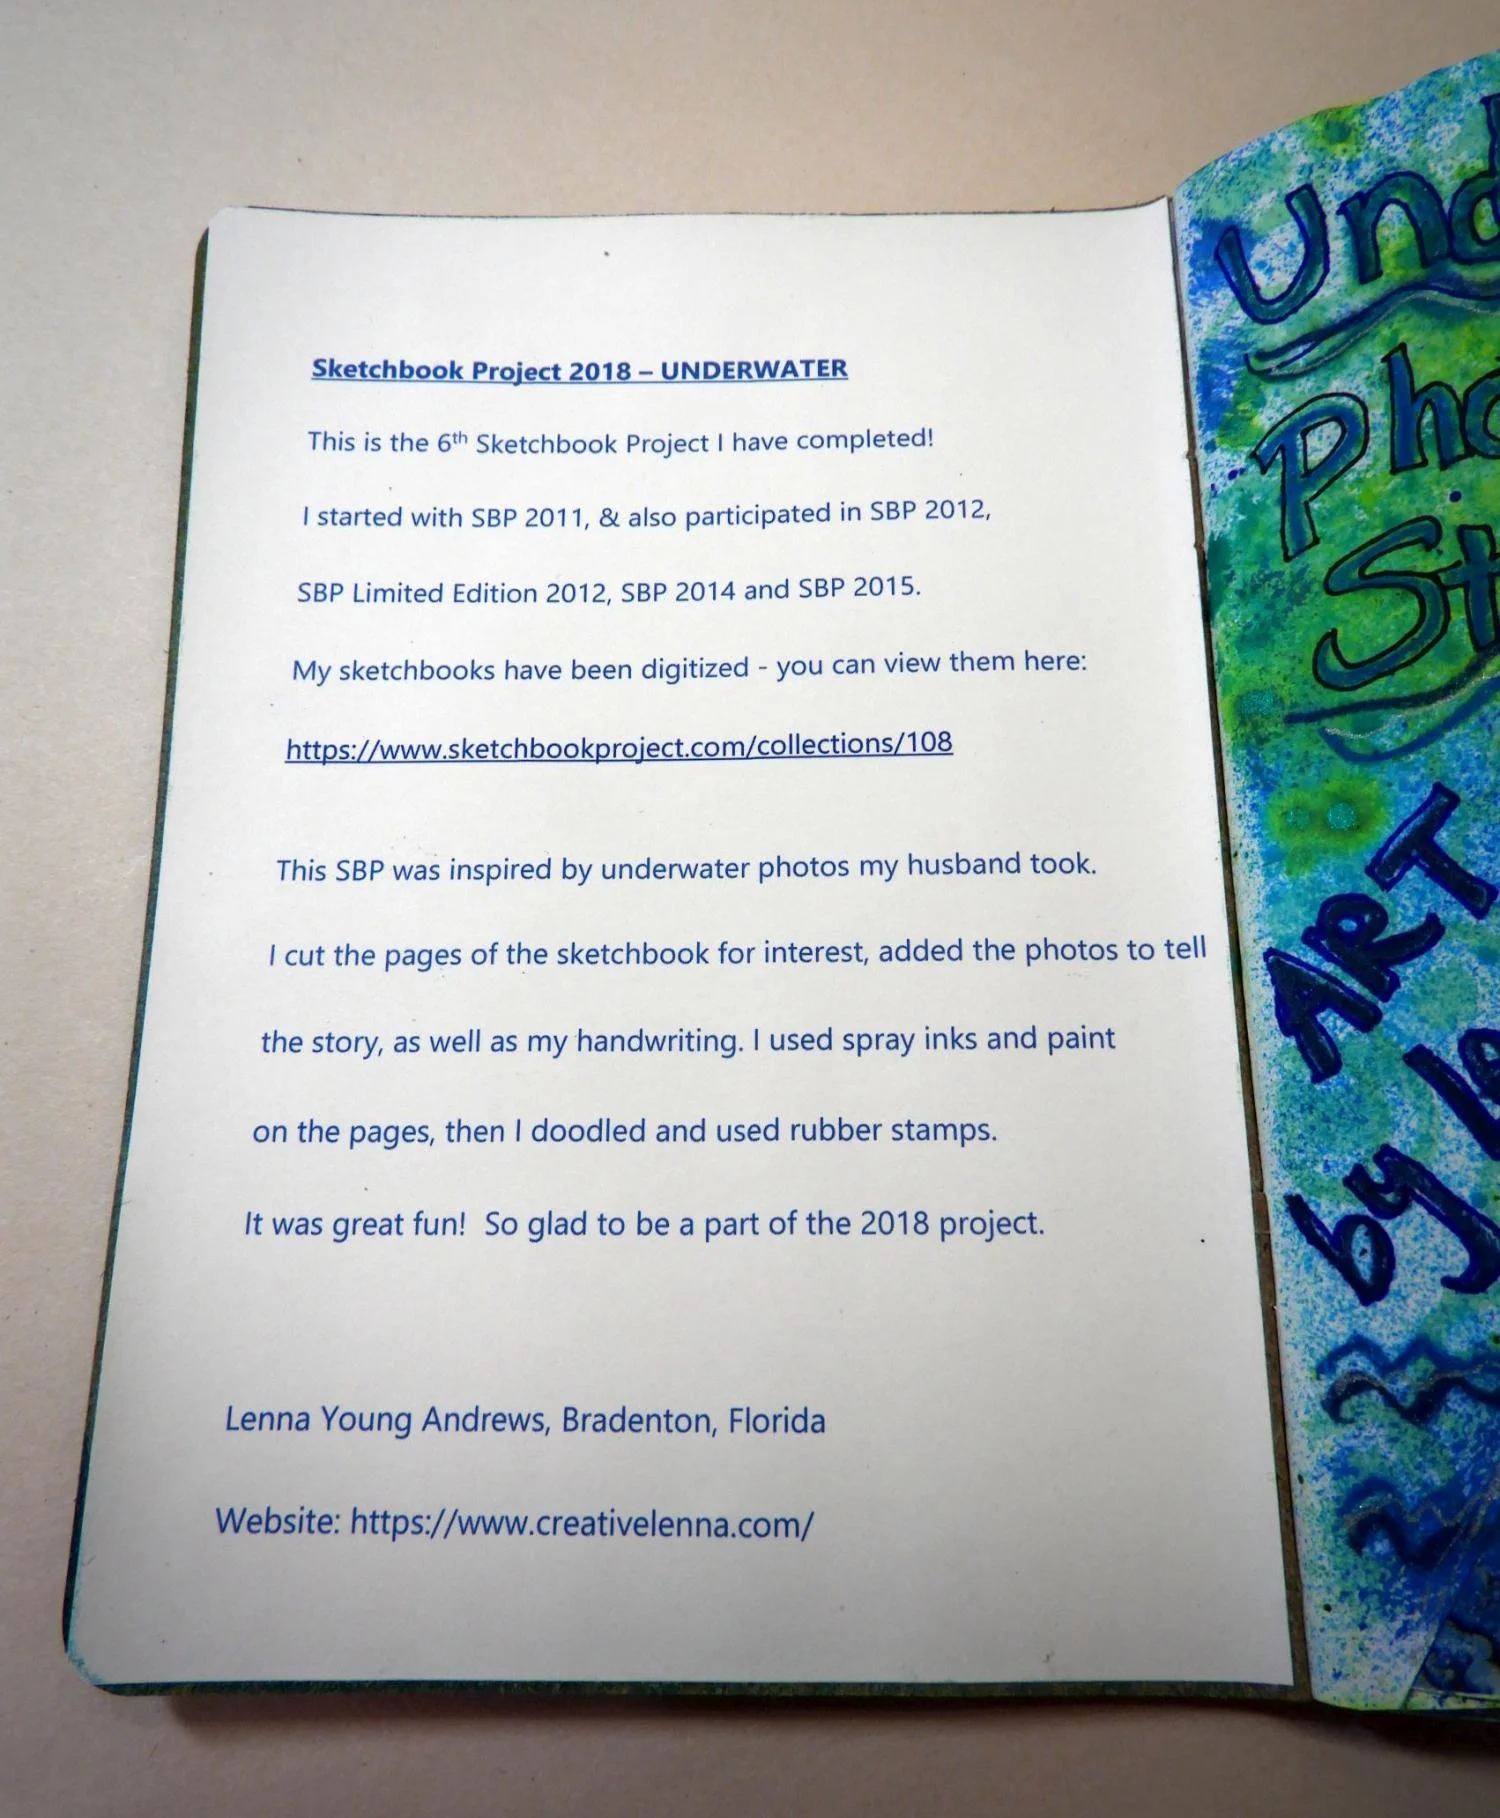 Sketchbook Project 2018 – UNDERWATER
This is the 6th Sketchbook Project I have completed!
I started with SBP 2011, & also participated in SBP 2012,
SBP Limited Edition 2012, SBP 2014 and SBP 2015.
My sketchbooks have been digitized - you can view them here:
https://www.sketchbookproject.com/collections/108
This SBP was inspired by underwater photos my husband took.
I cut the pages of the sketchbook for interest, added the photos to tell
the story, as well as my handwriting. I used spray inks and paint
on the pages, then I doodled and used rubber stamps.
It was great fun!  So glad to be a part of the 2018 project.
Lenna Young Andrews, Bradenton, Florida
Website: https://www.creativelenna.com/
ART
by